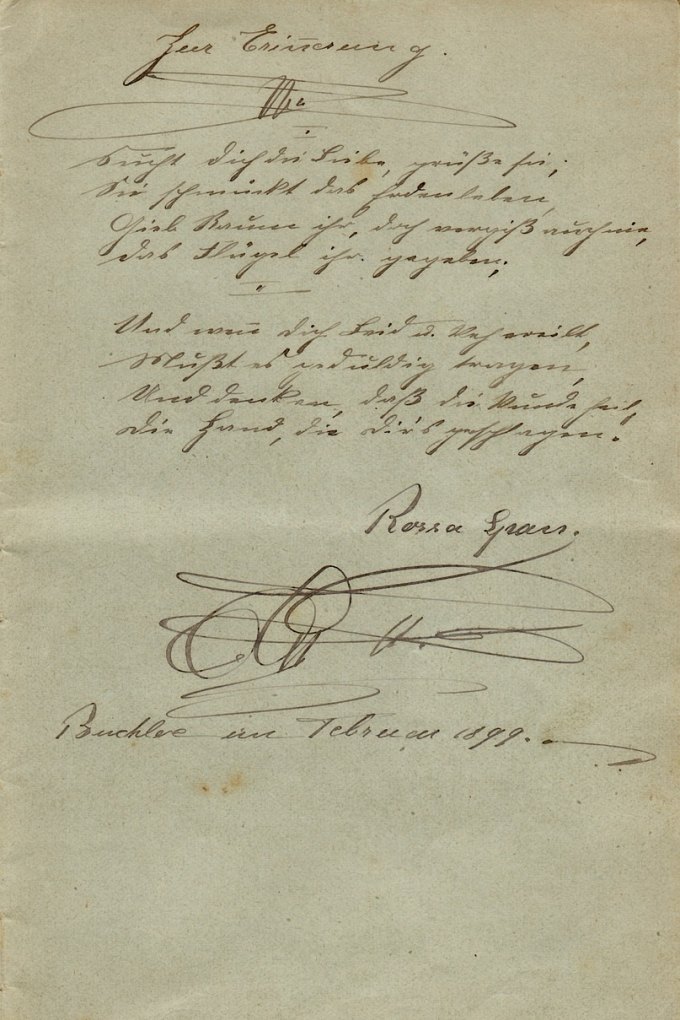 Zur Erinnerung.
Sucht dich die Liebe, grüße sie;
Sie schmückt das Erdenleben,
Gieb Raum ihr, doch vergiß auch nie,
das Flügel ihr gegeben;
Und wenn dich Leid u. Weh ereilt,
Mußt es geduldig tragen,
Und denken, daß die Wunde heilt,
die Hand, die dir's geschlagen.
Rosra
Buchloe im Februar 1899.